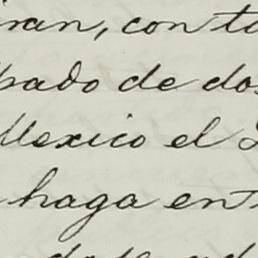 iran, con to
pado de dos
Mexico el
haga ent